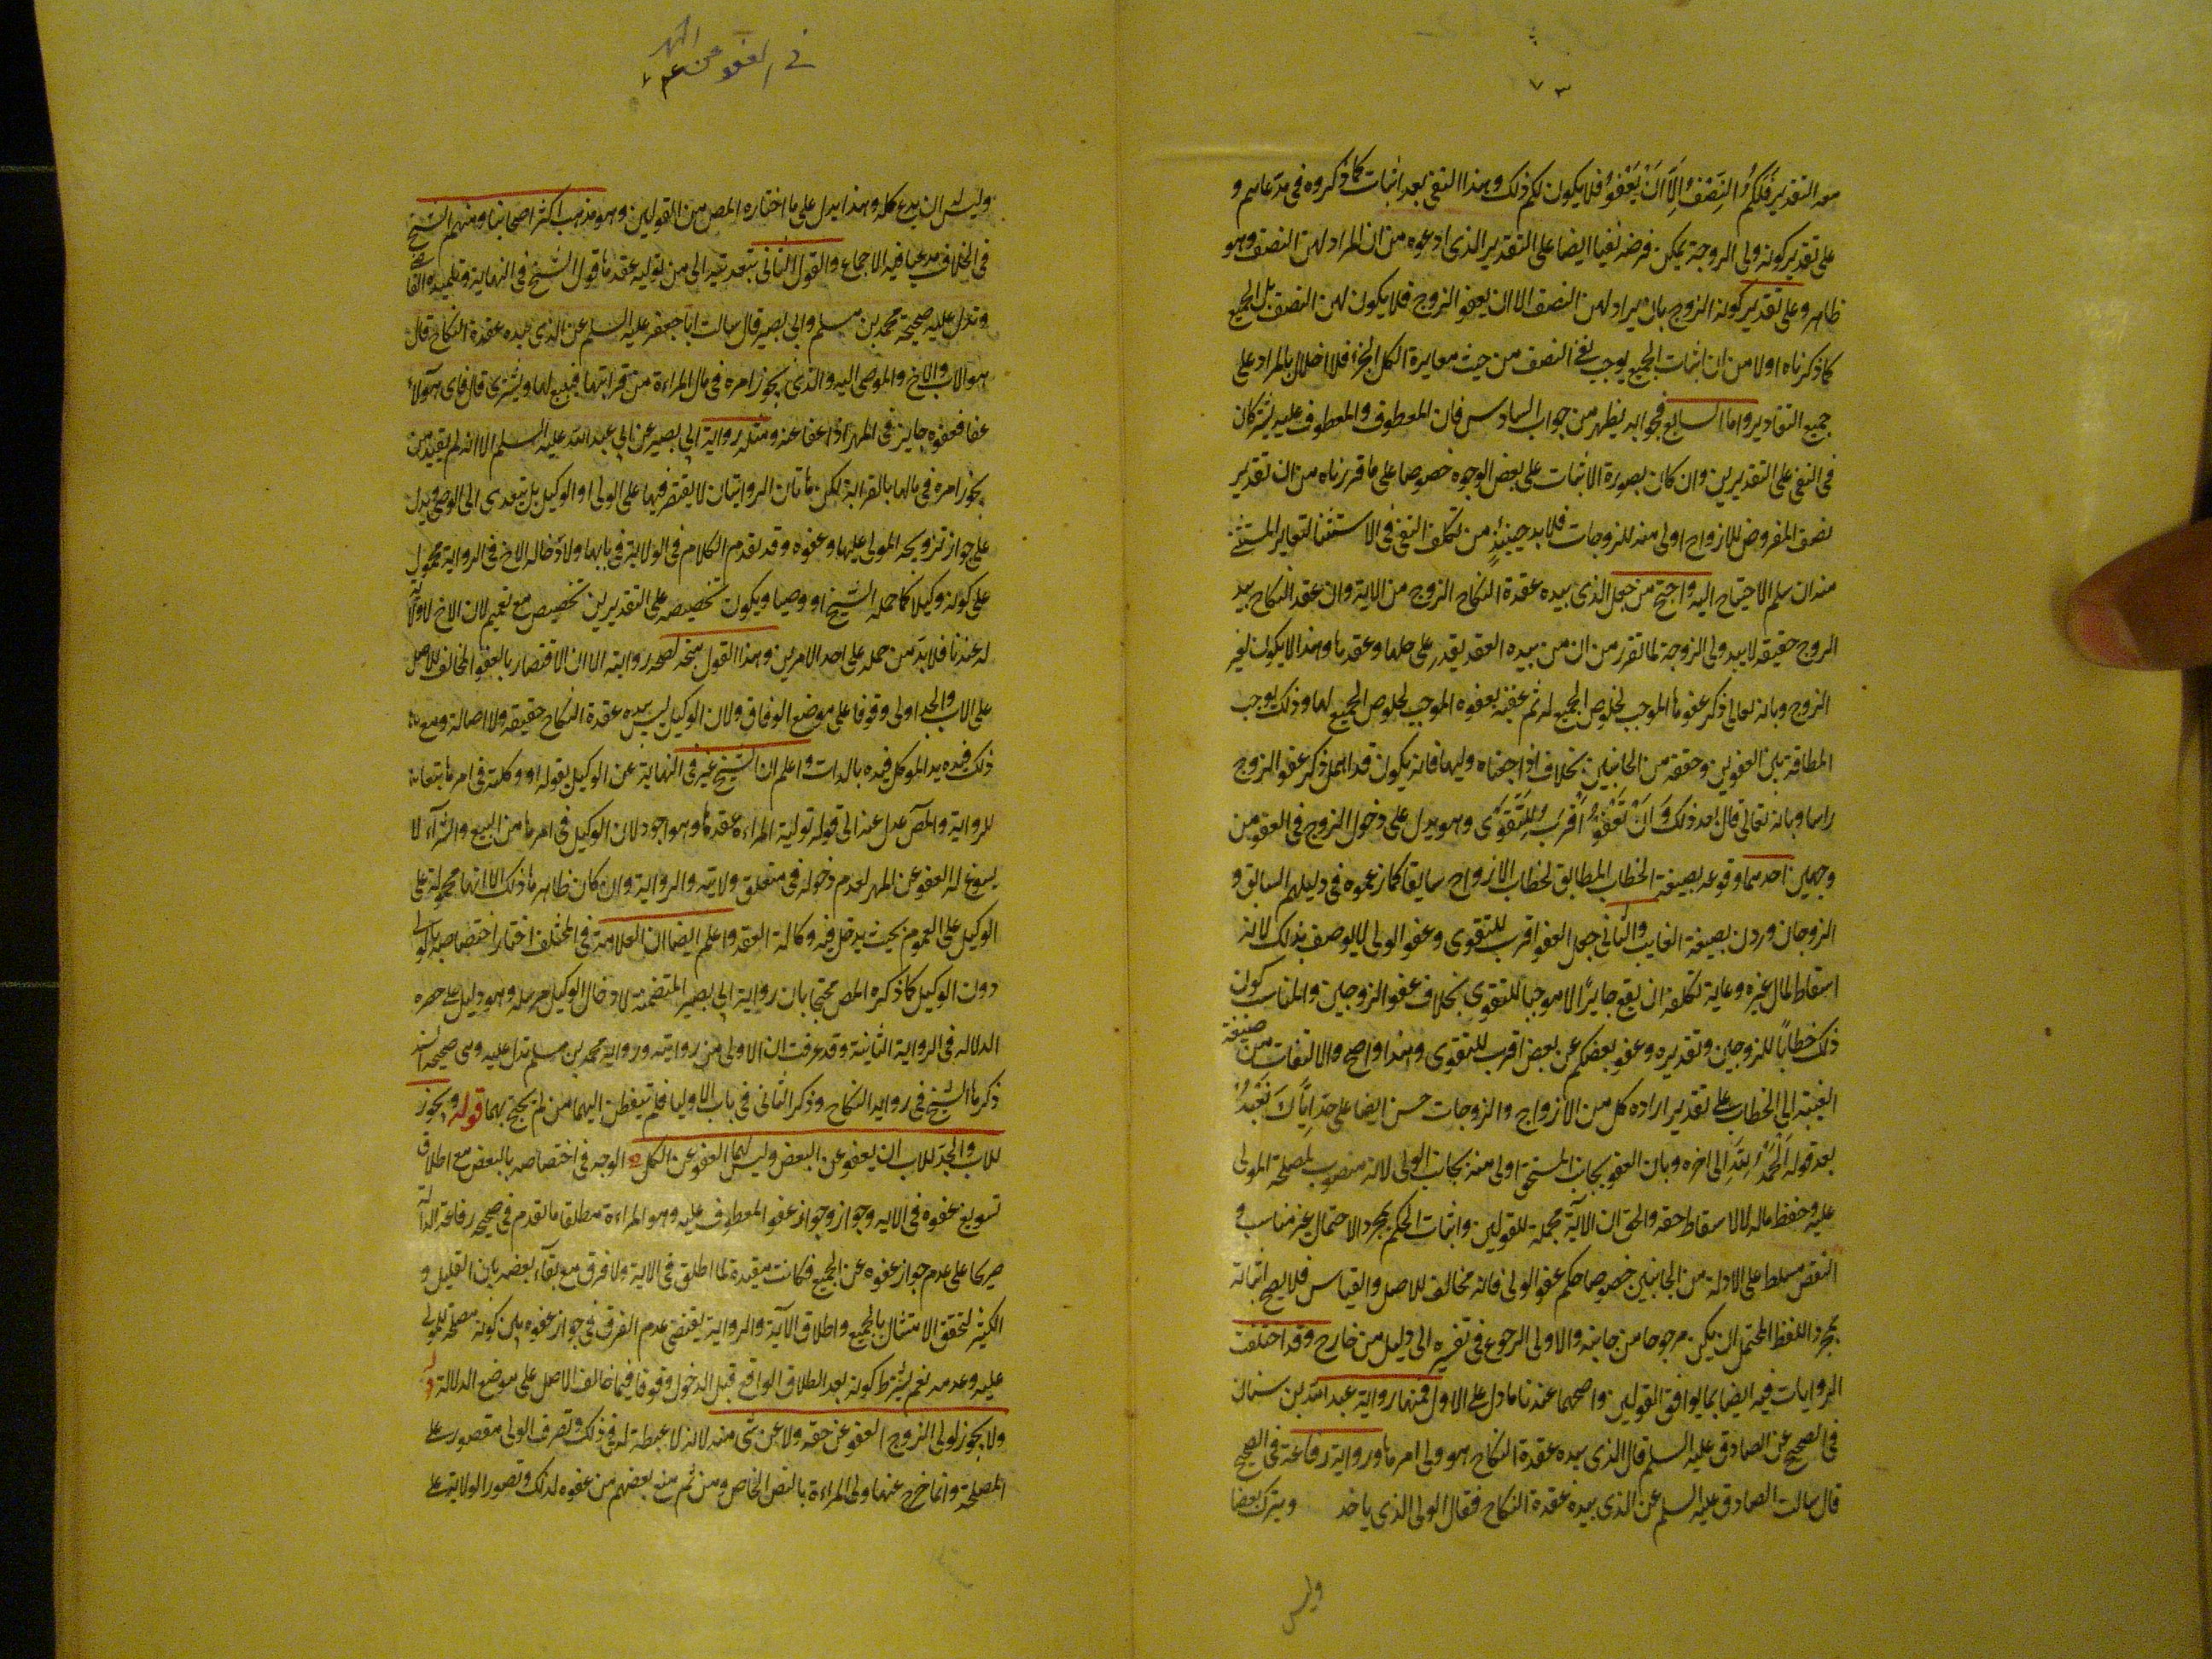 ٧٣
معه التقدير فلكم النصف الا ان يعفو فلا يكون لكم ذلك وهذا النفي بعد اثبات كما ذكروه في مدعاهم و
على تقدير كونه ولى الزوجة يمكن فرضه نفيا ايضا على التقدير الذى ادعوه من ان المراد لهن النصف وهو
ظاهر وعلى تقدير كونه الزوج بان يراد لهن النصف الا ان يعفو الزوج فلا يكون لهن النصف بل الجميع
كما ذكرناه اولا من ان اثبات الجميع يوجب نفى النصف من حيث مغايرة الكل الجزء فلا اخلال بالمراد على
جميع التقادير واما السابع فجوابه يظهر من جواب السادس فان المعطوف والمعطوف عليه يشتركان
في النفى على التقديرين وان كان بصورة الاثبات على بعض الوجوه خصوصا على ما قررناه من ان تقدير
نصف المفروض للازواج اولى منه للزوجات فلا بد حينئذ من تكلف النفى في الاستثنا لتغاير المستثنى
منه ان سلم الاحتياج اليه واحتج من جعل الذى بيده عقدة النكاح الزوج من الاية وان عقد النكاح بيد
الزوج حقيقة لا بيد ولى الزوجة لما تقرر من ان من بيده العقد يقدر على حلها وعقدها وهذا لا يكون لغير
الزوج وبانه تعالى ذكر عفوها الموجب لخلوص الجميع له ثم عقبه بعفوه الموجب لخلوص الجميع لها وذلك يوجب
المطابقة بين العفوين وحققه من الجانبين بخلاف اذا جعلناه وليها فانه يكون قد اهمل ذكر عفو الزوج
راسا وبانه تعالى قال بعد ذلك وَاَنْ تَعْفُوا اَقْرَبُ لِلتَّقْوَى وهو يدل على دخول الزوج في العفو من
وجهين احدهما وقوعه بصيغة الخطاب المطابق لخطاب الازواج سابقا كما زعموه في دليلهم السابق و
الزوجان وردن بصيغة الغايب والثانى جعل العفو اقرب للتقوى وعفو الولى لا يوصف بذلك لانه
اسقاط لمال غيره وغاية تكلفه ان يقع جايزا لا موجبا للتقوى بخلاف عفو الزوجين والمناسب كون
ذلك خطابا للزوجين وتقديره وعفو بعضكم عن بعض اقرب للتقوى وهذا واضح والالتفات من صيغة
الغيبة الى الخطاب على تقدير ارادة كل من الازواج والزوجات حسن ايضا على حد اِيَّاكَ نَعْبُدُ
بعد قوله اَلْحَمْدُ لِلّٰهِ الى اخره وبان العفو بجانب المستحق اولى منه بجانب الولى لانه منصوب لمصلحة المولى
عليه وحفظ ماله لا لاسقاط حقه والحق ان الاية مجملة للقولين واثبات الحكم بمجرد الاحتمال غير مناسب و
النقض مسلط على الادلة من الجانبين خصوصا حكم عفو الولى فانه مخالف للاصل والقياس فلا يصح اثباته
بمجرد اللفظ المحتمل ان يكن مرجوحا من جانبه والاولى الرجوع في تفسيره الى دليل من خارج وقد اختلفت
الروايات فيه ايضا بما يوافق القولين واصحها عندنا ما دل على الاول فمنها رواية عبد الله بن سنان
في الصحيح عن الصادق عليه السلم قال الذى بيده عقدة النكاح هو ولى امرها ورواية رفاعة في الصحيح
قال سالت الصادق عليه السلم عن الذى بيده عقدة النكاح فقال الولى الذى ياخذ ويترك بعضا
وليس
في العفو عن المهر
وليس له ان يدع كله وهذا يدل على ما اختاره المص من القولين وهو مذهب اكثر اصحابنا ومنهم الشيخ
في الخلاف مدعيا فيه الاجماع والقول الثانى بتعديته الى من توليه عقدها قول الشيخ في النهاية وتلميذه القاضى
وتدل عليه صحيحة محمد بن مسلم وابى بصير قال سالت ابا جعفر عليه السلم عن الذى بيده عقدة النكاح قال
هو الاب والاخ والموصى اليه والذى يجوز امره في مال المراءة من قرابتها فيبيع لها ويشترى قال فاى هولاء
عفا فعفوه جايز في المهر اذا عفا عنه ومثله رواية ابى بصير عن ابى عبد الله عليه السلم الا انه لم يقيد من
يجوز امره في مالها بالقرابة لكن هاتان الروايتان لا يقتصر فيهما على الولى او الوكيل بل يتعدى الى الوصى ويدل
على جواز تزويجه المولى عليها وعفوه وقد تقدم الكلام في الولاية في بابها ولادخاله الاخ في الرواية محمول
على كونه وكيلا كما حمله الشيخ او وصيا ويكون تخصيصه على التقديرين تخصيص مع تعميم لان الاخ لا ولاية
له عندنا فلا بد من حمله على احد الامرين وهذا القول متجه لصحة روايته الا ان الاقتصار بالعفو المخالف للاصل
على الاب والجد اولى وقوفا على موضع الوفاق ولان الوكيل ليس بيده عقدة النكاح حقيقه ولا اصالة ومع
ذلك فيده يد الموكل فيده بالذات واعلم ان الشيخ عبر في النهاية عن الوكيل بقوله او وكلته في امرها متابعة
للرواية والمص عدل عنه الى قوله توليه المراءة عقدها وهو اجود لان الوكيل في امرها من البيع والشراء لا
يسوغ له العفو عن المهر لعدم دخوله في متعلق ولايته والرواية وان كان ظاهرها ذلك الا انها محمولة على
الوكيل على العموم بحيث يدخل فيه وكالة العقد واعلم ايضا ان العلامة في المختلف اختار اختصاصه بالولى
دون الوكيل كما ذكره المص محتجا بان رواية ابى بصير المتضمنة لادخال الوكيل مرسلة وهو دليل على حصره
الدلالة في الرواية الثانية وقد عرفت ان الاولى من روايته ورواية محمد بن مسلم تدل عليه وهى صحيحة السند
ذكرها الشيخ في زوايد النكاح وذكر الثانى في باب الاوليا فلم يتفطن اليهما من لم يحتج بهما قوله ويجوز
للاب والجد للاب ان يعفو عن البعض وليس لهما العفو عن الكل الوجه في اختصاصه بالبعض مع اطلاق
تسويغ عفوه في الاية وجواز وجواز عفو المعطوف عليه وهو المراءة مطلقا ما تقدم في صحيحة رفاعة الدالة
صريحا على عدم جواز عفوه عن الجميع فكانت مقيدة لما اطلق في الاية ولا فرق مع بقاء بعضه بين القليل و
الكثير لتحقق الامتثال بالجميع واطلاق الاية والرواية يقتضى عدم الفرق في جواز عفوه بين كونه مصلحة للمولى
عليه وعدمه نعم يشترط كونه بعد الطلاق الواقع قبل الدخول وقوفا فيما خالف الاصل على موضع الدلالة
ولا يجوز لولى الزوج العفو عن حقه ولا عن شى منه لانه لا غبطة له في ذلك وتصرف الولى مقصور على
المصلحة وانما خرج عنها ولى المراءة بالنص الخاص ومن ثم منع بعضهم من عفوه لذلك وتصور الولاية على